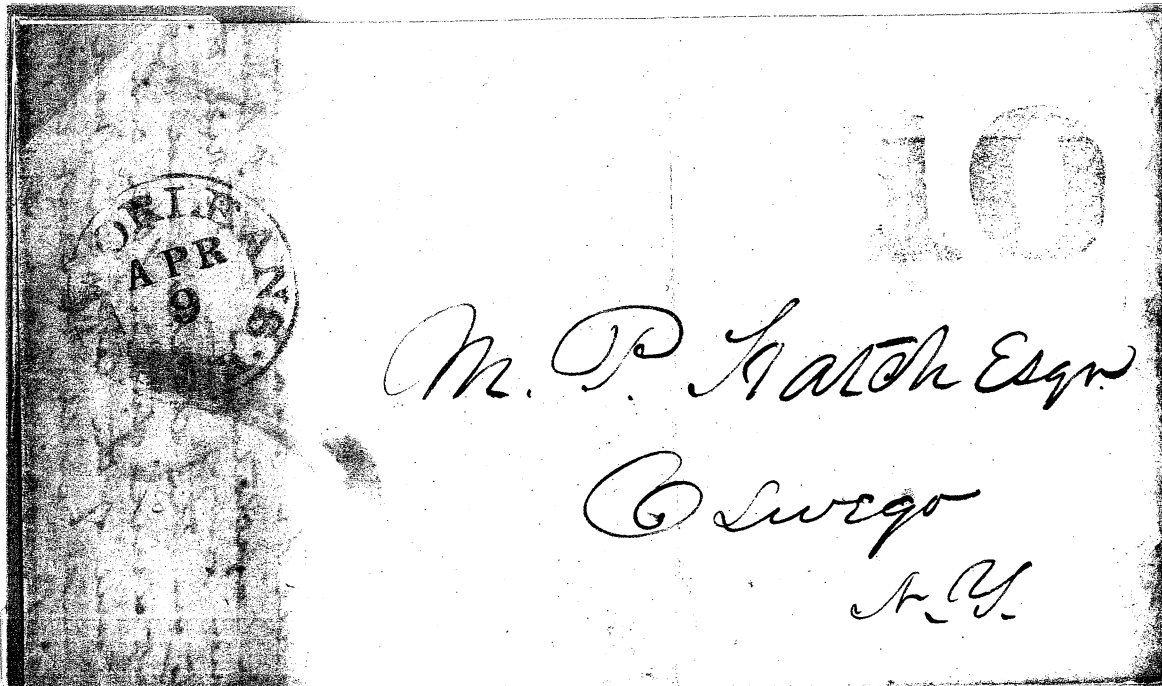 10
ORLEANS
APR
9
M. P. Hatch Esqr.
Oswego
N. Y.